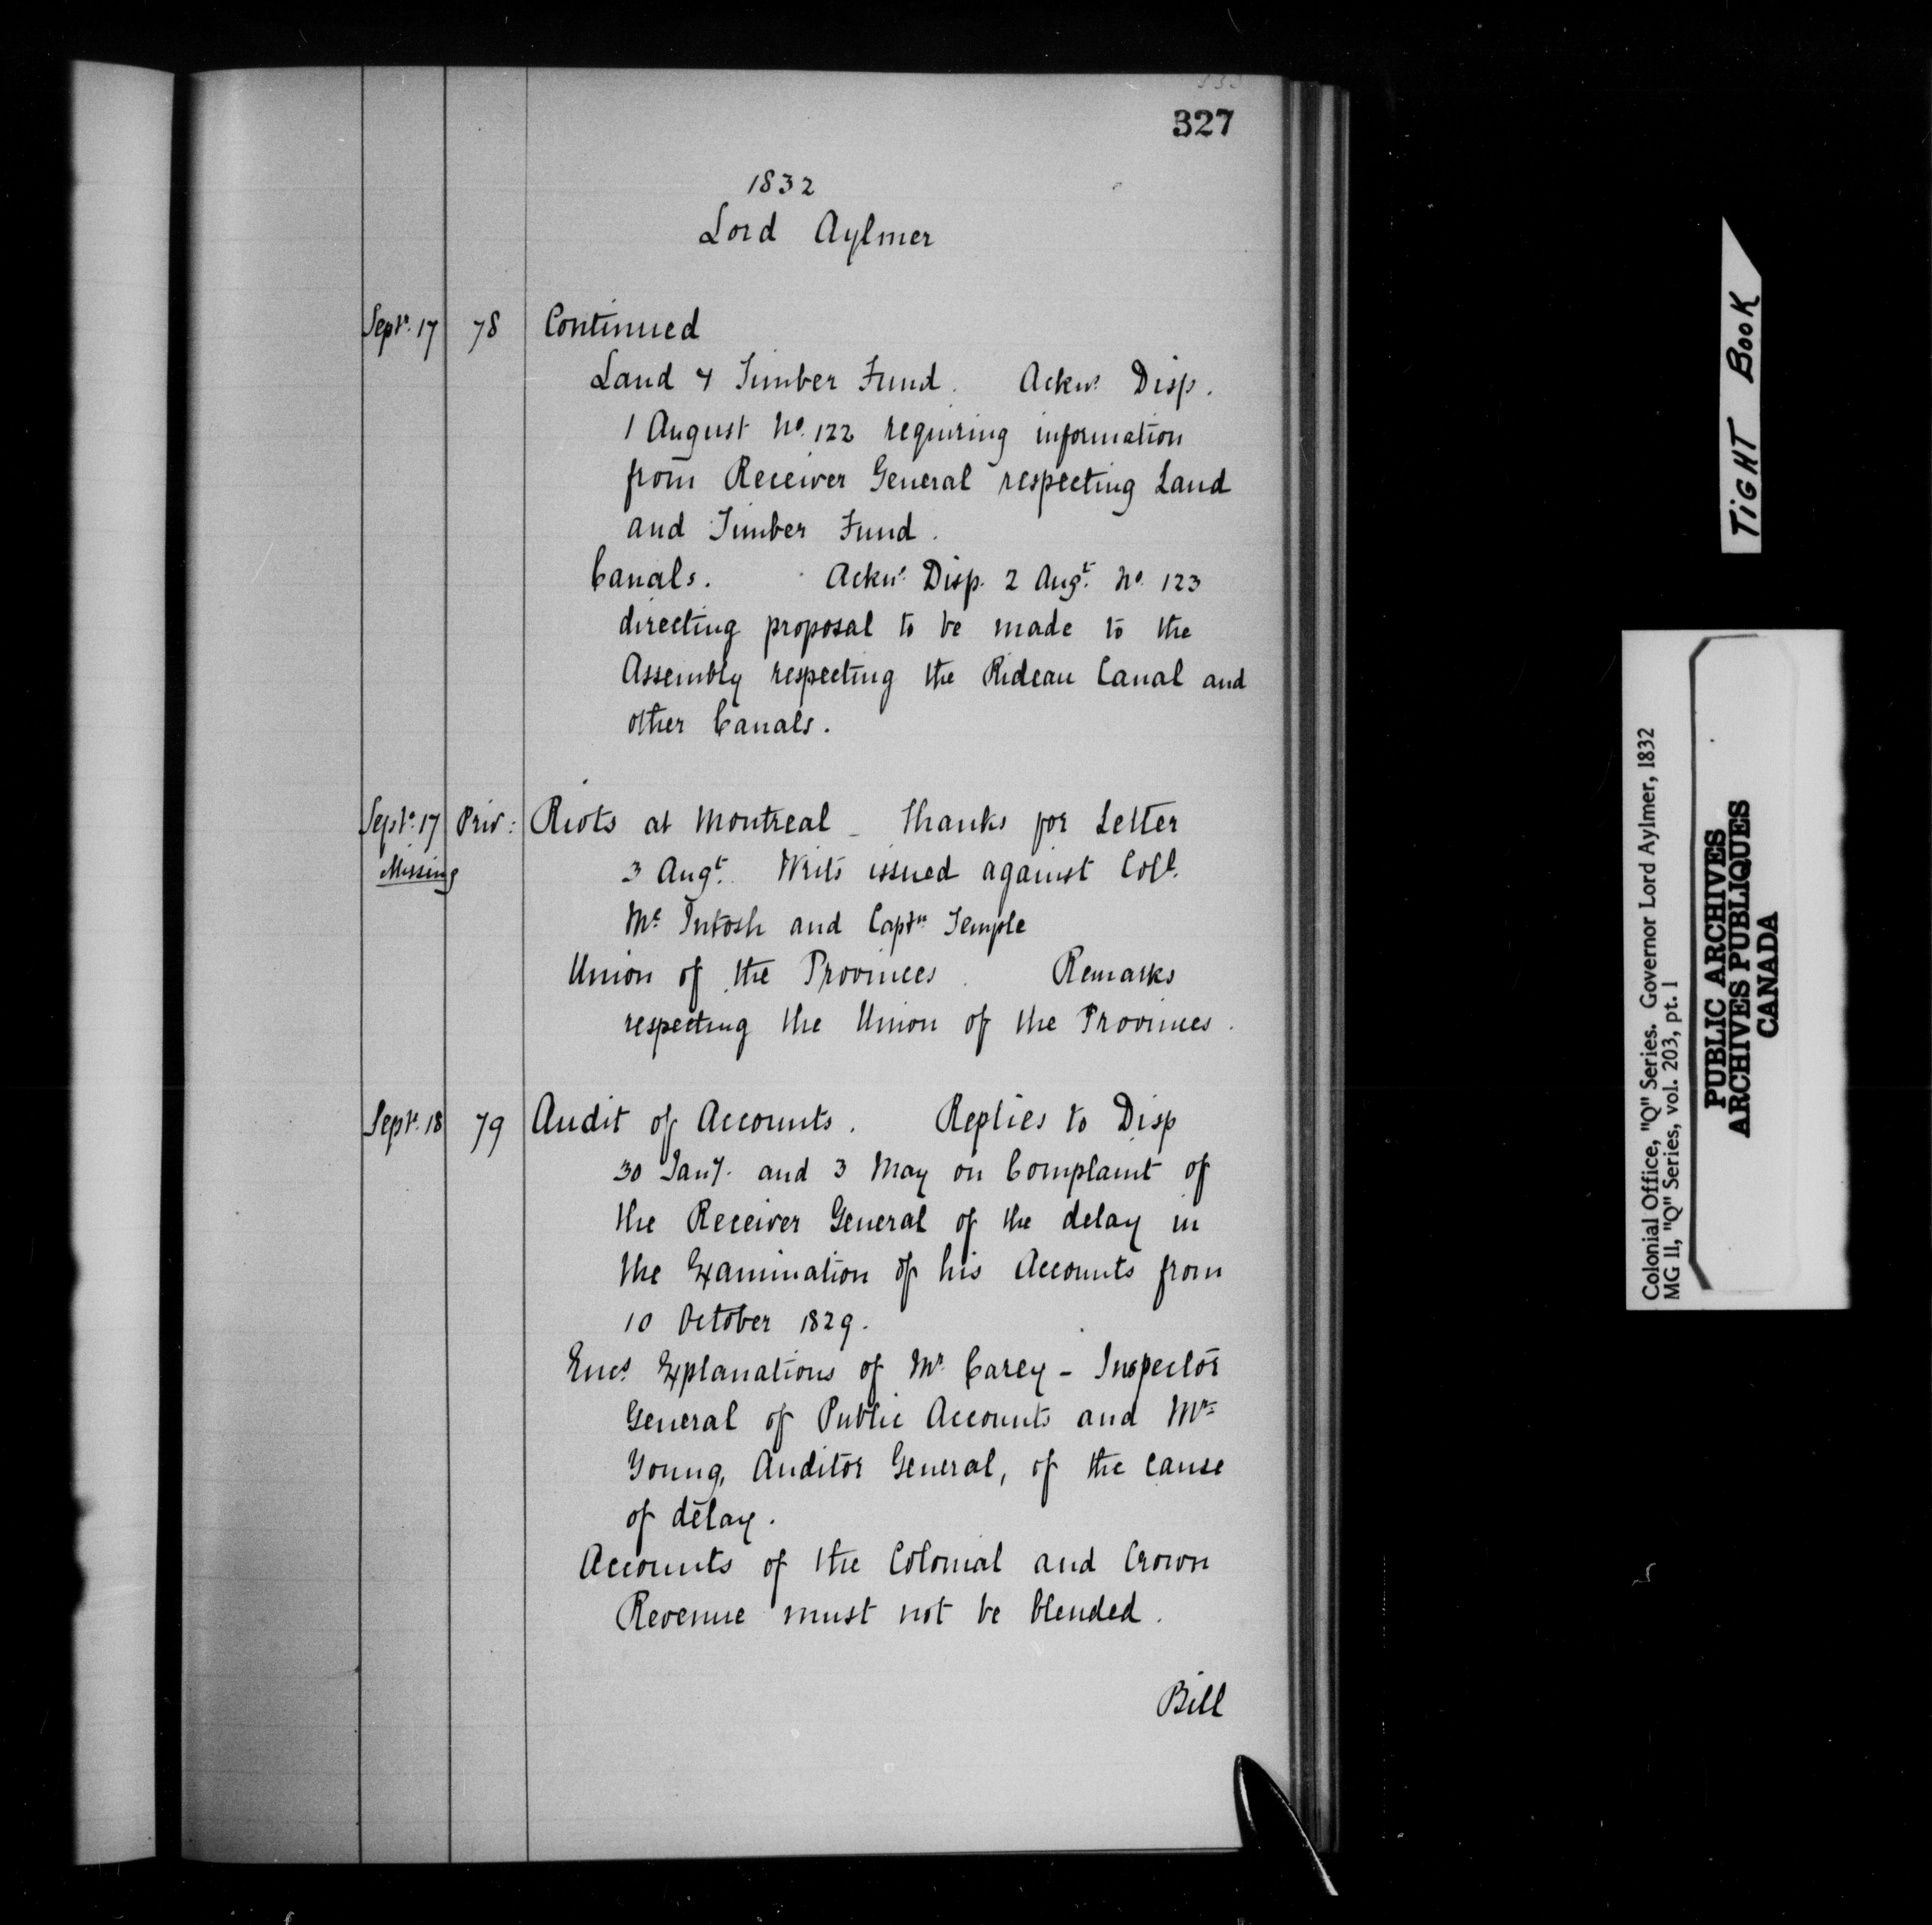 327
1832
Lord Aylmer
Septr. 17 78 Continued
Land & Timber Fund. Ackns. Disp.
1 August No. 122 requiring information
from Receiver General respecting Land
and Timber Fund.
Canals. Ackns. Disp. 2 Augt. No. 123
directing proposal to be made to the
Assembly respecting the Rideau Canal and
other Canals.
Septr. 17 Priv: Riots at Montreal - Thanks for Letter
Missing 3 Augt. Writs issued against Coll.
Mc Intosh and Captn Temple
Union of the Provinces. Remarks
respecting the Union of the Provinces.
Septr. 18 79 Audit of Accounts. Replies to Disp
30 Jany. and 3 May on Complaint of
the Receiver General of the delay in
the Examination of his Accounts from
10 October 1829.
Encs. Explanations of Mr. Carey - Inspector
General of Public Accounts and Mr.
Young, Auditor General, of the cause
of delay.
Accounts of the Colonial and Crown
Revenue must not be blended.
Bill
TIGHT BOOK
Colonial Office, "Q" Series. Governor Lord Aylmer, 1832
MG 11, "Q" Series, vol. 203, pt. 1
PUBLIC ARCHIVES
ARCHIVES PUBLIQUES
CANADA